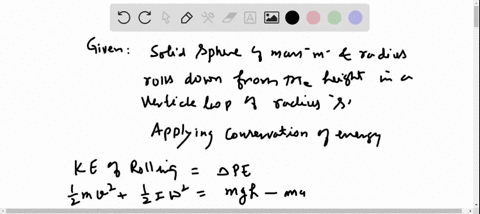 Given: Solid Sphere of mass-m- & radius
rolls down from the height in a
Verticle loop of radius 'S'
Applying Conservation of energy
KE of Rolling = ΔPE
½mv² + ½Iω² = mgh - mg